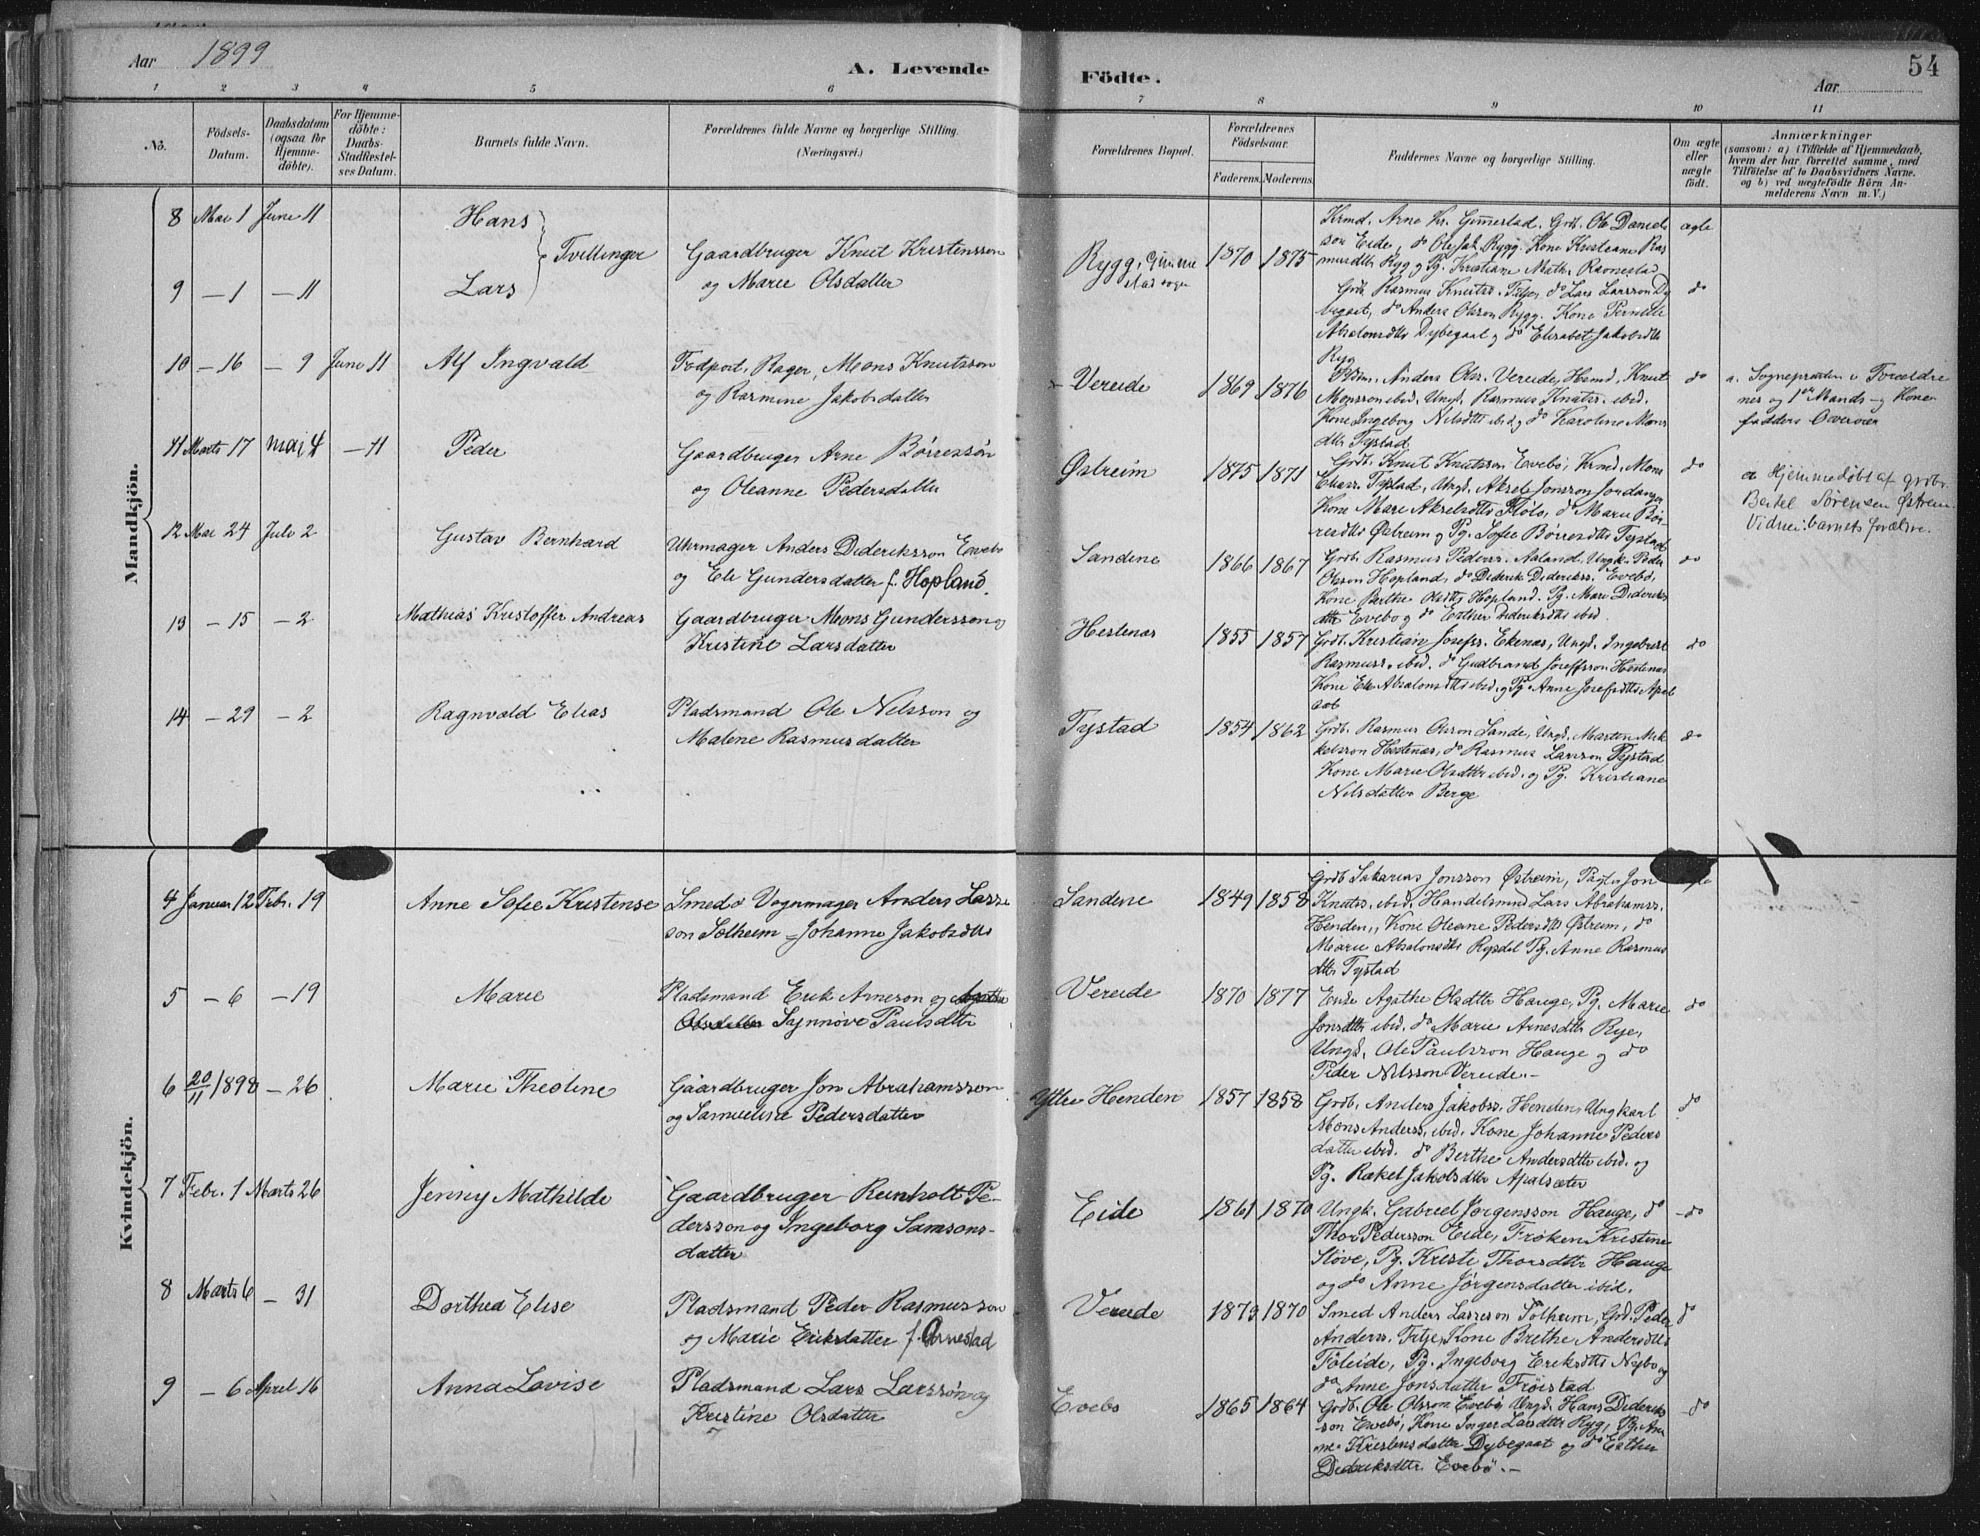 Aar 1899
A. Levende
Födte.
Aar
54
1 2 3 4 5 6 7 8 9 10 11
No.
Födsels-
Datum.
Daabsdatum
(ogsaa for
Hjemme-
döbte).
For Hjemme-
döbte:
Daabs-
Stadfæstel-
ses Datum.
Barnets fulde Navn.
Forældrenes fulde Navne og borgerlige Stilling.
(Næringsvei.)
Forældrenes Bopæl.
Forældrenes
Födselsaar.
Faderens. Moderens.
Faddernes Navne og borgerlige Stilling.
Om ægte
eller
uægte
födt.
Anmærkninger
(saasom: a) i Tilfælde af Hjemmedaab,
hvem der har forrettet samme, med
Tilföielse af to Daabsvidners Navne.
og b) ved uægtefödte Börn An-
melderens Navn m. V.)
Mandkjön.
8 Mai 1 Juni 11 Hans
Tvillinger
Gaardbruger Knut Kristensson
og Marie Olsdatter
Rygg, Gimme
stad sogn
1870 1875
Krmd. Arne Kr. Gimmestad. Grdb. Ole Daniels
son Eide, do Ole Jak. Rygg. Kone Kristiane Ras
musdtr Ryg og Pg. Kristiane Math. Ravnestad
ægte
9 — 1 — 11 Lars
Grdb. Rasmus Knutss. Tytjen, do Lars Larsson Dy
begaet, do Anders Olsson Rygg. Kone Pernille
Absalonsdtr Dybegaet og do Elisabet Jakobsdtr
Ryg
do
10 — 16 — 9 Juni 11 Alf Ingvald
Fodpost, Bager, Mons Knutsson
og Rasmine Jakobsdatter
Vereide
1869 1876
Pldm. Anders Olss. Vereide, Hemd. Knut
Monsson ibid. Ungk. Rasmus Knutss. ibid.
Kone Ingeborg Nilsdtr ibid og do Karoline Mons
dtr Tystad
do
a. Sognepræsten i Forældre
nes og 1ste Mands- og Kone
fadders Overvær
11 Marts 17 Mai 4 — 11 Peder
Gaardbruger Arne Børressøn
og Oleanne Pedersdatter
Østreim
1875 1871
Grdb. Knut Knutsson Evebø, Krmd. Mons
Eliass. Tystad, Ungk. Aksel Jonsson Jordanger
Kone Mari Akselsdtr Fløto, do Marie Bør-
resdtr Østreim og Pg. Sofie Børresdtr Tystad
do
a Hjemmedøbt af grdb.
Bertel Sørensen Østreim.
Vidner: barnets forældre.
12 Mai 24 Juli 2 Gustav Bernhard
Uhrmager Anders Dideriksson Evebø
og Eli Gundersdatter f. Hopland.
Sandene
1866 1867
Grdb. Rasmus Peders. Aaland, Ungk. Peder
Olsson Hopland, do Diderik Dideriks. Evebø,
Kone Berthe Olsdtr Hopland. Pg. Mari Dideriks
dtr Evebø og do Esther Dideriksdtr ibid.
do
13 — 15 — 2 Mathias Kristoffer Andreas
Gaardbruger Mons Gundersson og
Kristine Larsdatter
Hestenæs
1855 1857
Grdb. Kristian Josefss. Ekenæs, Ungk. Ingebret
Rasmuss. ibid. do Gudbrand Joseffsson Hestenæs
Kone Eli Absalonsdtr ibid. og Pg. Anne Josefsdtr Apal
sæt
do
14 — 29 — 2 Ragnvald Elias
Pladsmand Ole Nelsson og
Malene Rasmusdatter
Tystad
1854 1862
Grdb. Rasmus Olsson Sande, Ungk. Marten Mik
kelsson Hestenæs, do Rasmus Larsson Tystad
Kone Marie Olsdtr ibid. og Pg. Kristiane
Nelsdatter Berge
do
Kvindekjön.
4 Januar 12 Febr. 19 Anne Sofie Kristense
Smed o Vognmager Anders Lasse
son Solheim – Johanne Jakobsdtr
Sandene
1849 1858
Grdb Sakarias Jonsson Østreim, Pagter Jon
Knutss. ibid. Handelsmnd Lars Abrahamss.
Henden, Kone Oleane Pedersdtr Østreim, do
Marie Absalonsdtr Rysdal Pg. Anne Rasmus
dtr Tystad
ægte
5 — 6 — 19 Marie
Pladsmand Erik Arneson og Agathe
Olsdatter Synnøve Paulsdtr
Vereide
1870 1877
Enke Agathe Olsdtr Hauge, Pg. Marie
Jonsdtr ibid. do Marie Arnesdtr Rye,
Ungk. Ole Paulsson Hauge og do
Peder Nilsson Vereide.-
do
6 20/11 1898 — 26 Marie Theoline
Gaardbruger Jon Abrahamsson
og Samueline Pedersdatter
Yttre Henden
1857 1858
Grdb. Anders Jakobss. Henden, Ungkarl
Mons Anderss. ibid. Kone Johanne Peders
datter ibid. do Berthe Andersdtr ibid. og
Pg. Rakel Jakobsdtr Apalsæter
do
7 Febr. 1 Marts 26 Jenny Mathilde
Gaardbruger Reinholt Pe-
dersson og Ingeborg Samsons-
datter
Eide
1861 1870
Ungk. Gabriel Jørgensson Hauge, do
Thor Pedersson Eide, Frøken Kristine
Støve, Pg. Kristi Thorsdtr Hauge
og do Anne Jørgensdatter ibid.
do
8 Marts 6 — 31 Dorthea Elise
Pladsmand Peder Rasmusson
og Marie Eriksdatter f. Arnestad
Vereide
1879 1870
Smed Anders Lasseson Solheim, Grd. Peder
Anderss. Fitje, Kone Brethe Andersdtr
Føleide, Pg. Ingeborg Eriksdtr Nybø og
do Anne Jonsdatter Frøistad
do
9 — 6 April 16 Anna Lovise
Pladsmand Lars Larssøn og
Kristine Olsdatter
Evebø
1865 1864
Grdb. Ole Olsson Evebø, Ungk. Hans Dideriks
son Evebø, Kone Inger Larsdtr Ryg, Pg. An
ne Kristensdatter Dybegaat og do Esther
Dideriksdtr Evebø.-
do